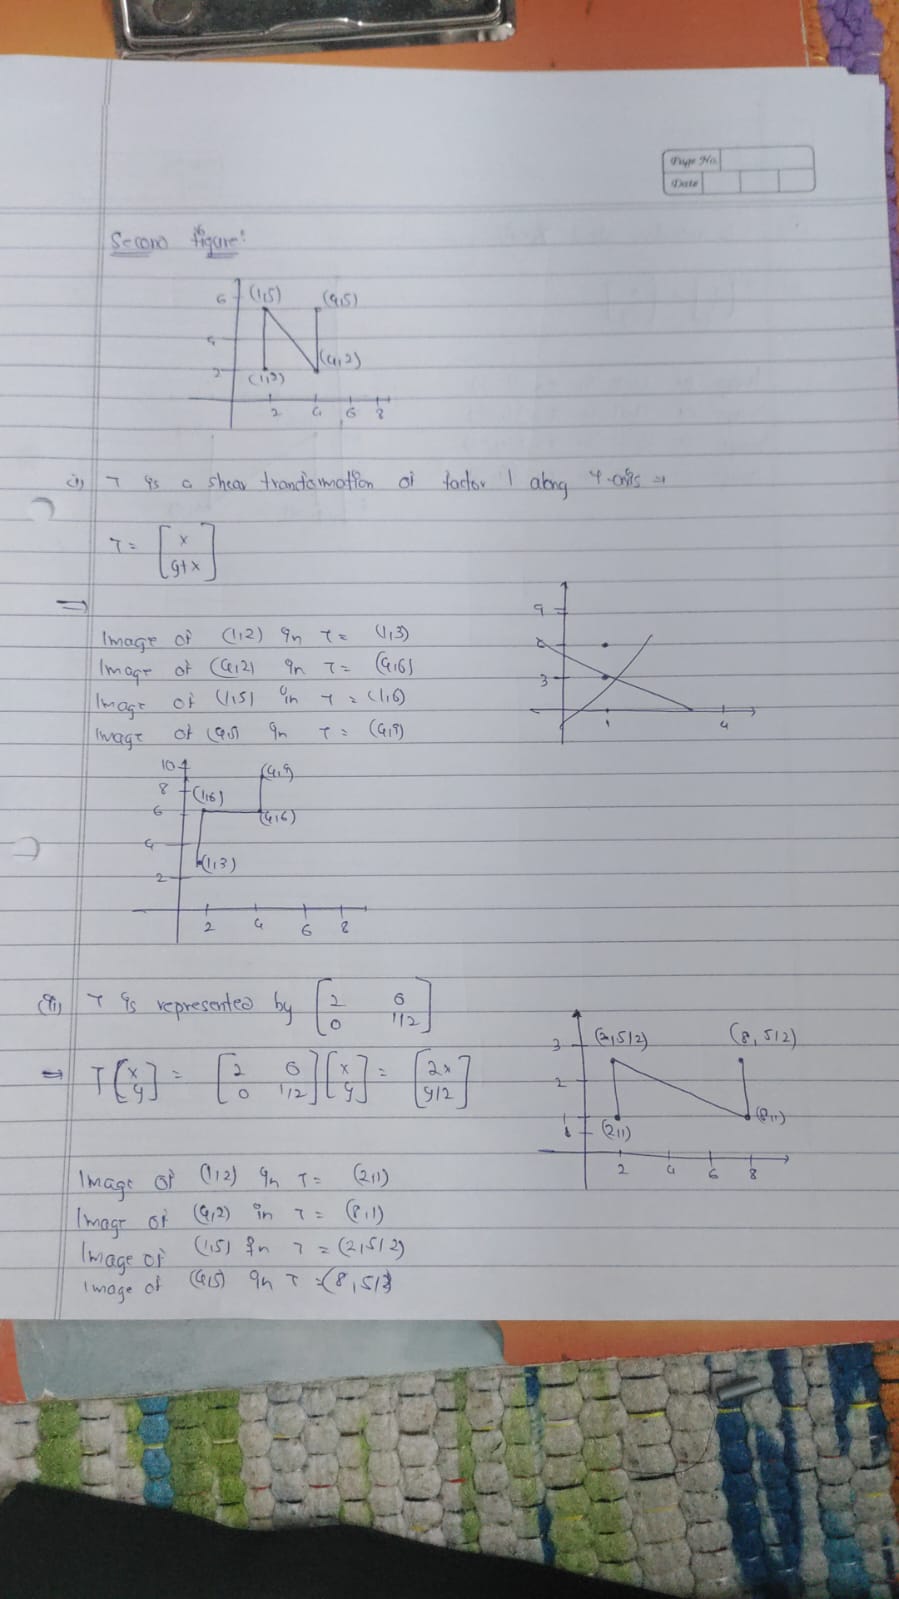 Page No.
Date
Second figure:
6 (1,5) (4,5)
4
2 (1,2) (4,2)
2 4 6 8
(i) T is a shear transformation of factor 1 along Y-axis →
T = [ x
y+x ]
⇒
Image of (1,2) in T = (1,3)
Image of (4,2) in T = (4,6)
Image of (1,5) in T = (1,6)
Image of (4,5) in T = (4,9)
9
6
3
1 4
10
8 (1,6) (4,9)
6 (4,6)
4
2 (1,3)
2 4 6 8
(ii) T is represented by [ 2 0
0 1/2 ]
⇒ T [ x = [ 2 0 [ x = [ 2x
y ] 0 1/2 ] y ] y/2 ]
3 (2,5/2) (8,5/2)
2
1 (2,1) (8,1)
2 4 6 8
Image of (1,2) in T = (2,1)
Image of (4,2) in T = (8,1)
Image of (1,5) in T = (2,5/2)
Image of (4,5) in T = (8,5/2)